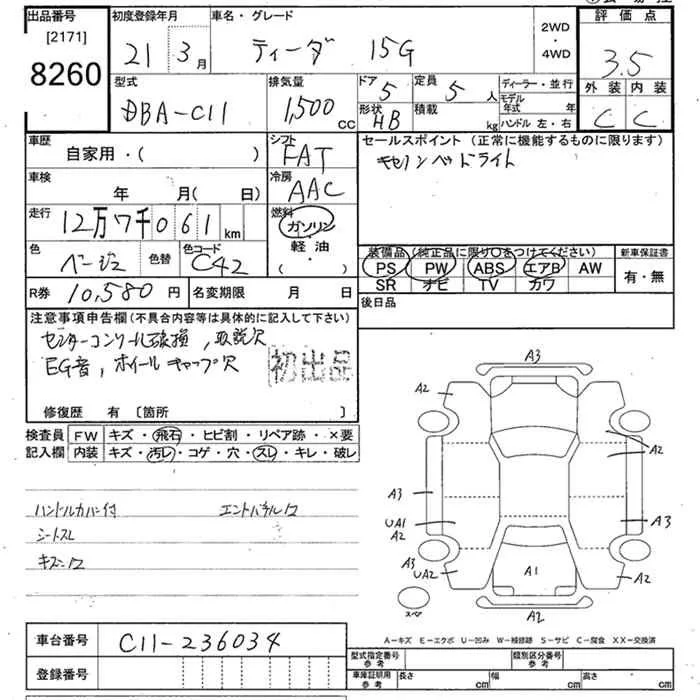 出品番号 初度登録年月 車名・グレード 2WD・4WD 評価点
[2171]
8260
21 3月 ティーダ 15G 3.5
型式 排気量 ドア 定員 ディーラー・並行 外装 内装
DBA-C11 1,500 cc 5 5人 モデル年式 年 C C
形状 積載 ハンドル 左・右
HB kg
車歴 シフト セールスポイント (正常に機能するものに限ります)
自家用・( ) FAT キセノンヘッドライト
車検 冷房
年 月(日) AAC
走行 燃料
12万7千061km ガソリン
軽油
( ・ )
色 色替 色コード 装備品 (純正品に限り○をつけてください) 新車保証書
ベージュ C42 PS PW ABS エアB AW 有・無
SR ナビ TV カワ
R券 10,580円 名変期限 月 日 後日品
注意事項申告欄(不具合内容等は具体的に記入して下さい)
センターコンソール破損,取説欠
EG音,ホイールキャップ欠
初出品
修復歴 有 〔箇所 〕
検査員 FW キズ・飛石・ヒビ割・リペア跡・×要
記入欄 内装 キズ・汚レ・コゲ・穴・スレ・キレ・破レ
ハンドルカバー付
シートスレ
A3
A2
A2
A3
A3
UA1
A2
A3
UA2
A1
A2
A2
スペア
A-キズ E-エクボ U-凹み W-補修跡 S-サビ C-腐食 XX-交換済
車台番号 C11-236034
登録番号
型式指定番号 参考 類別区分番号 参考
車庫証明用 参考 長さ cm 幅 cm 高さ cm